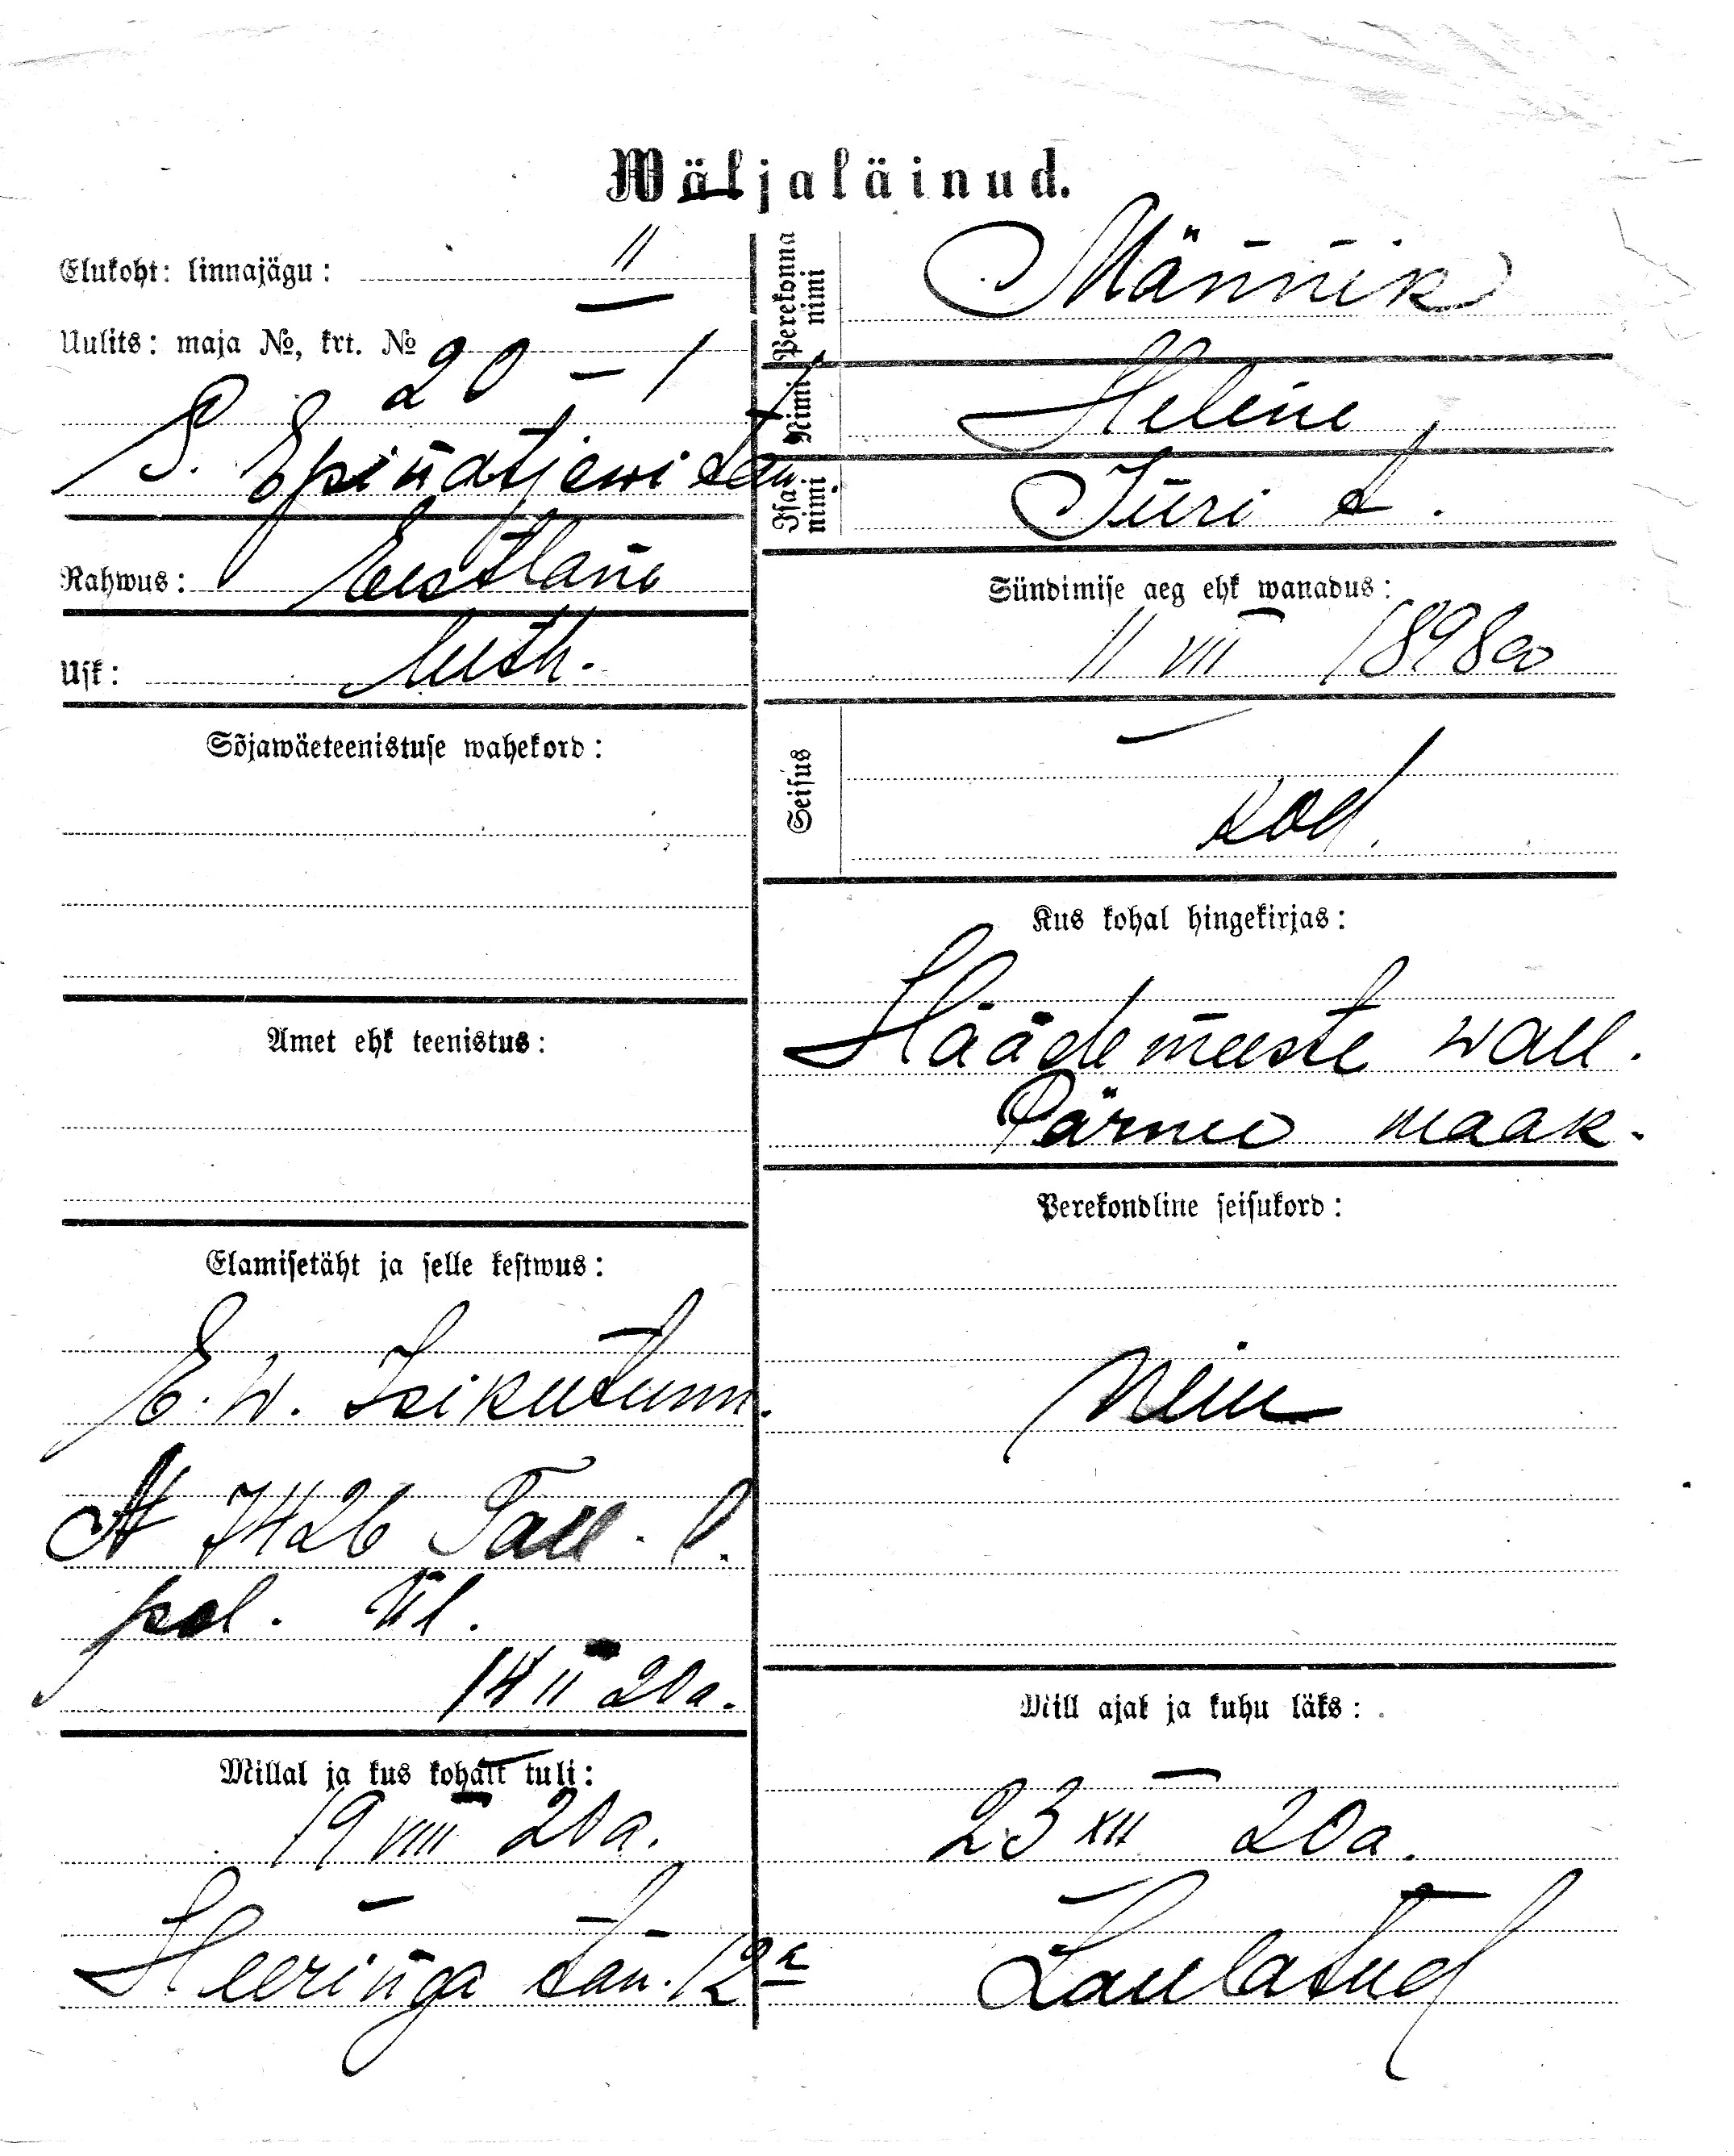 Wäljaläinud.
Elukoht: linnajägu: II
Uulits: maja №, krt. № 20 – 1
S. Epinatjewi tän.
Rahwus: Eestlane
Usk: Luth.
Sõjawäeteenistuse wahekord:
Amet ehk teenistus:
Elamisetäht ja selle kestwus:
E. W. Isikutunn.
№ 7426 Tall. l.
pol. ül.
14 II 20 a.
Millal ja kus kohalt tuli:
19 VIII 20 a.
Heeringa tän. 12a
Perekonna nimi Männik
Nimi Helene
Isa nimi Jüri t.
Sündimise aeg ehk wanadus:
11 VII 1898 a
Seisus
kod.
Kus kohal hingekirjas:
Häädemeeste wall.
Pärnu maak.
Perekondline seisukord:
Neiu
Mill ajal ja kuhu läks:
23 XII 20 a.
Laulatud